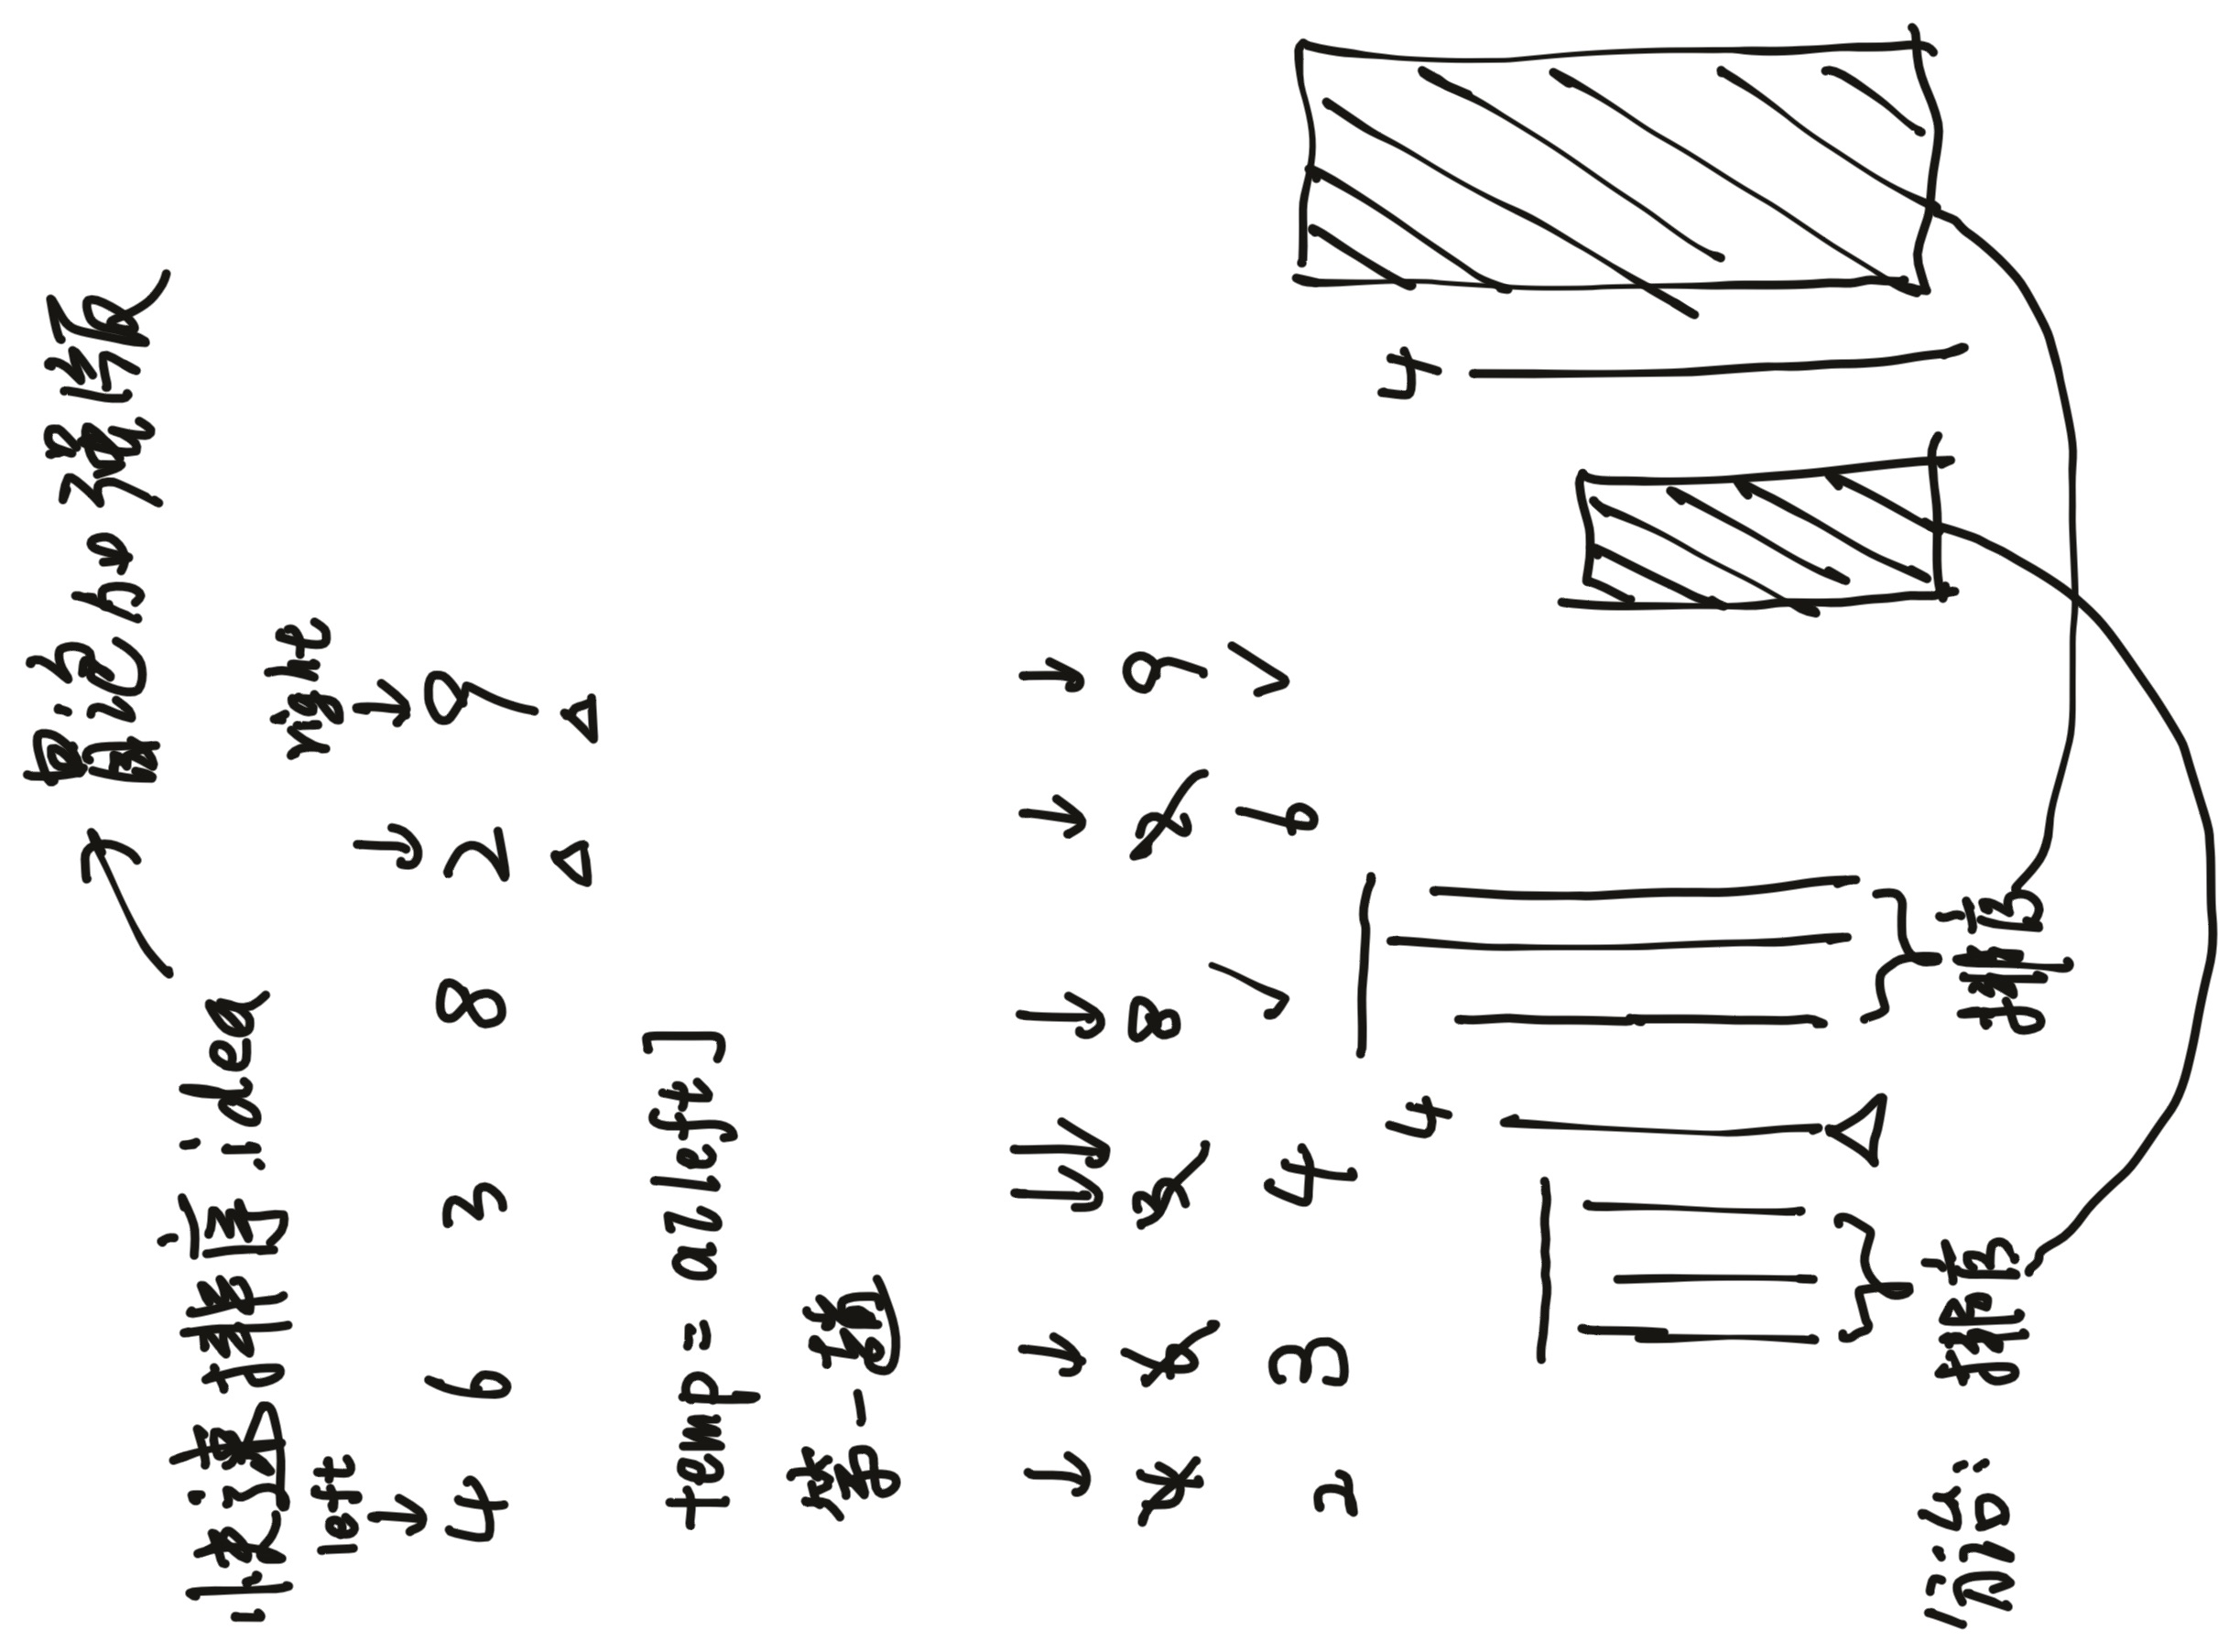 冒泡加强版
1.快速排序.idea
left right
4 6 3 8 2 9
temp=a[left]
第一趟
4 6 3 8 2 9
2 3 4 6
4 4
分治: 排序 排序